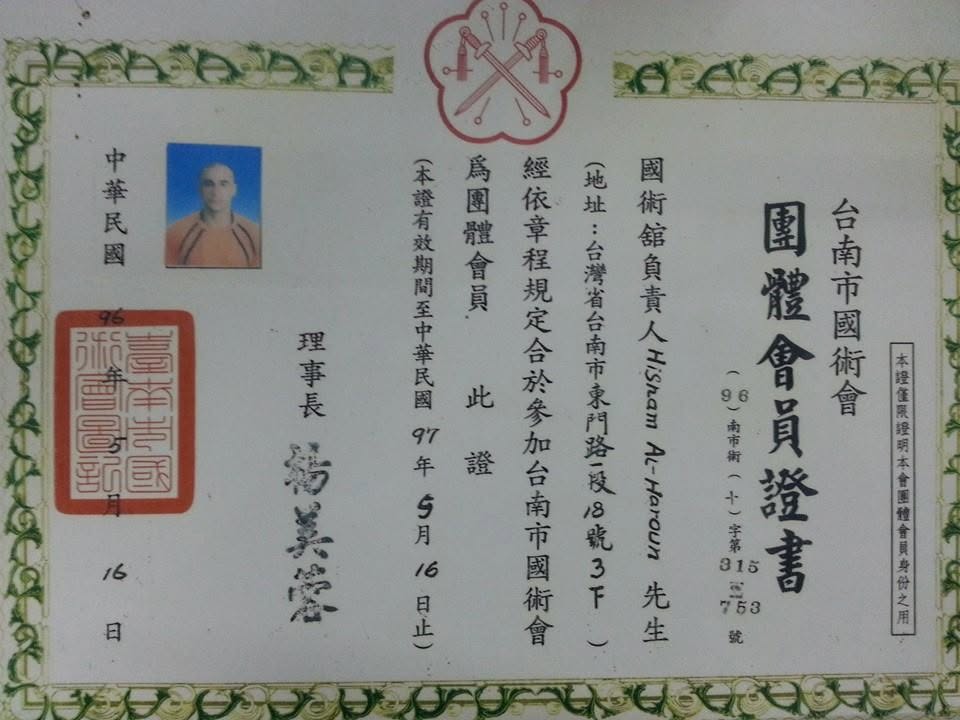 本證僅限證明本會團體會員身份之用
台南市國術會
團體會員證書
(96)南市術(十)字第315753號
國術舘負責人HiSham AL-Haroun先生
(地址:台灣省台南市東門路一段18號3F)
經依章程規定合於參加台南市國術會
爲團體會員 此證
(本證有效期間至中華民國97年5月16日止)
理事長 楊美蓉
中華民國96年5月16日
臺南市國術會圖記